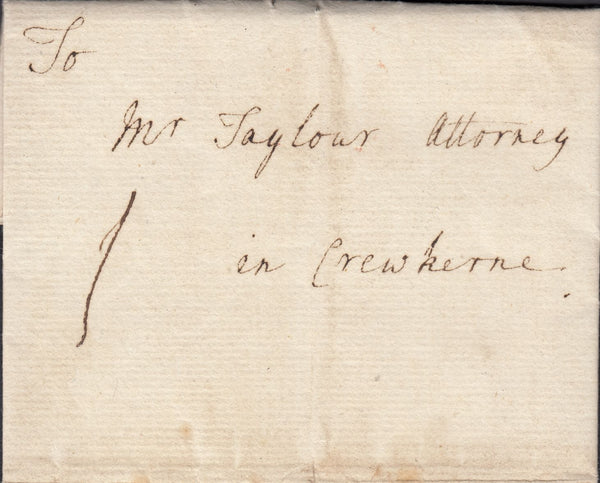 To
Mr Taylour Attorney
in Crewkerne.
1